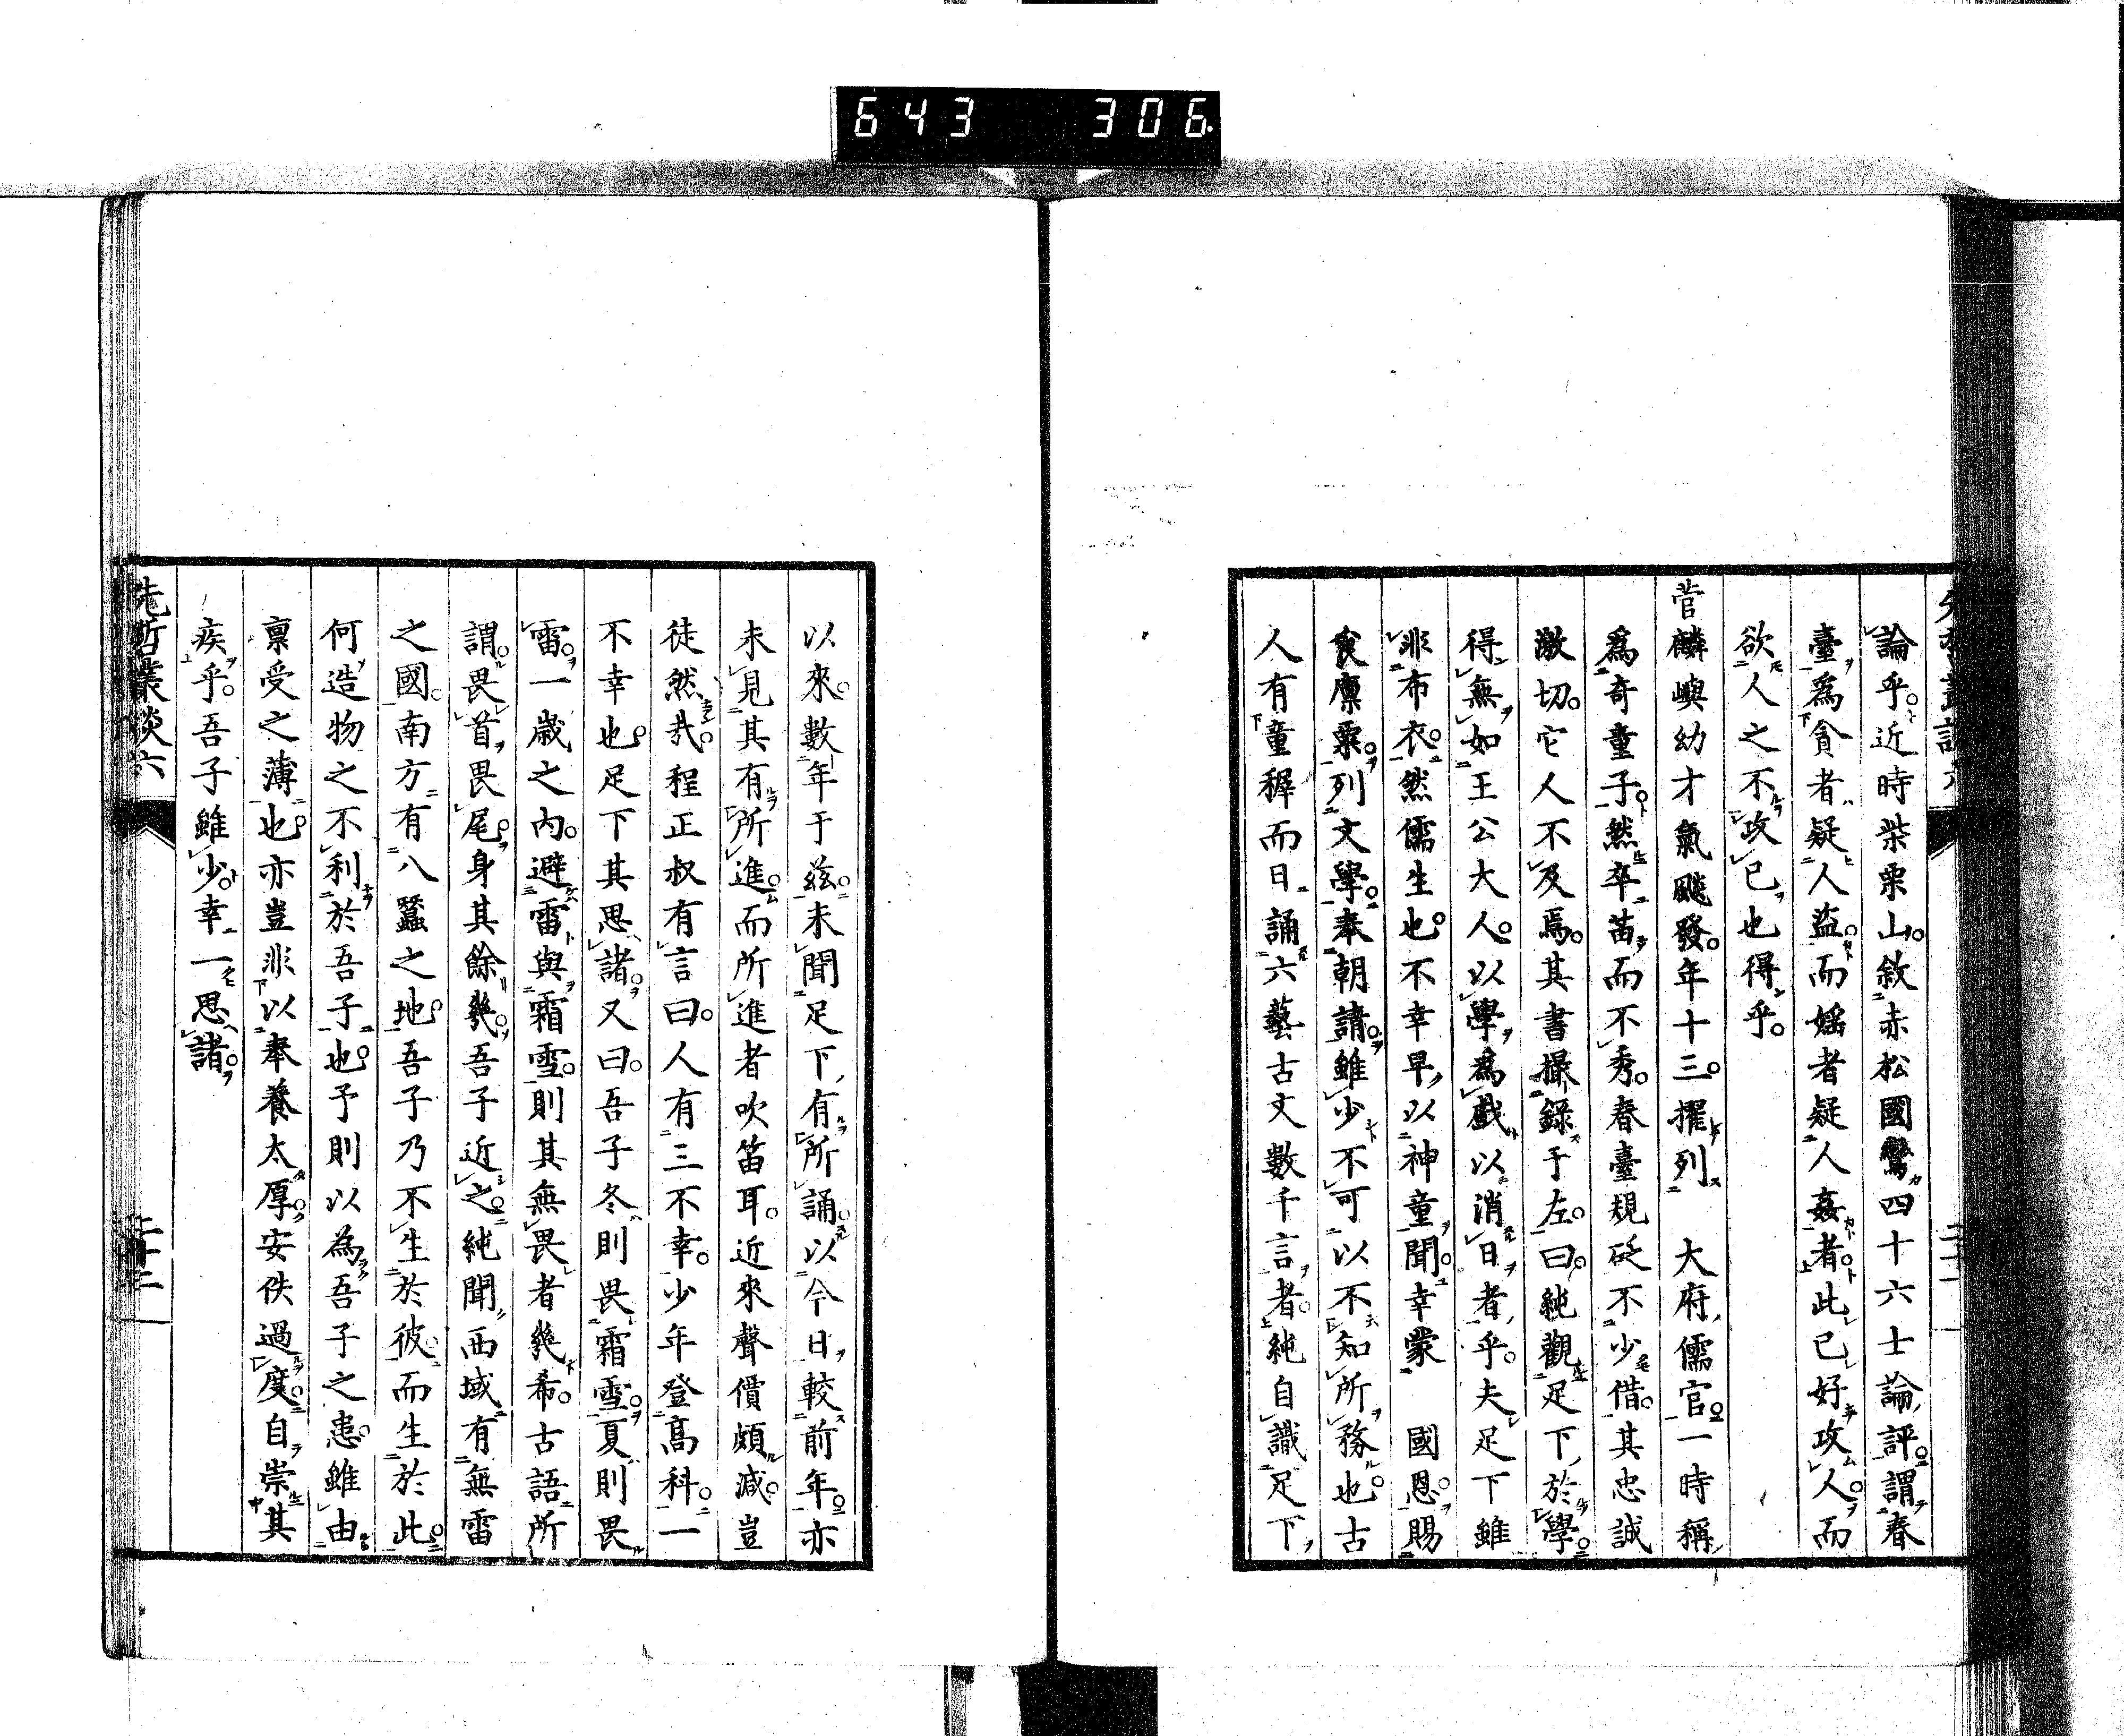 643 306
論乎。近時柴栗山。敘赤松國鸞四十六士論評。謂春
臺爲貪者疑人盜。而婬者疑人姦者。此已好攻人。而
欲人之不攻已也得乎。
菅麟嶼幼才氣颷發。年十三。擢列 大府儒官。一時稱
爲奇童子。然卒苗而不秀。春臺規砭不少借。其忠誠
激切。它人不及焉。其書撮錄于左。曰。純觀足下於學。
得無如王公大人。以學爲戲以消日者乎。夫足下雖
非布衣。然儒生也。不幸早以神童聞。幸蒙 國恩。賜
食廩粟。列文學。奉朝請。雖少不可以不知所務也。古
人有童穉而日誦六藝古文數千言者。純自識足下
以來。數年于玆。未聞足下有所誦。以今日較前年。亦
未見其有所進。而所進者吹笛耳。近來聲價頗減。豈
徒然哉。程正叔有言曰。人有三不幸。少年登高科。一
不幸也。足下其思諸。又曰。吾子冬則畏霜雪。夏則畏
雷。一歲之內。避雷與霜雪。則其無畏者幾希。古語所
謂。畏首畏尾。身其餘幾。吾子近之。純聞西域有無雷
之國。南方有八蠶之地。吾子乃不生於彼。而生於此。
何造物之不利於吾子也。予則以為吾子之患。雖由
稟受之薄也。亦豈非以奉養太厚。安佚過度。自崇其
疾乎。吾子雖少。幸一思諸。
先哲叢談六